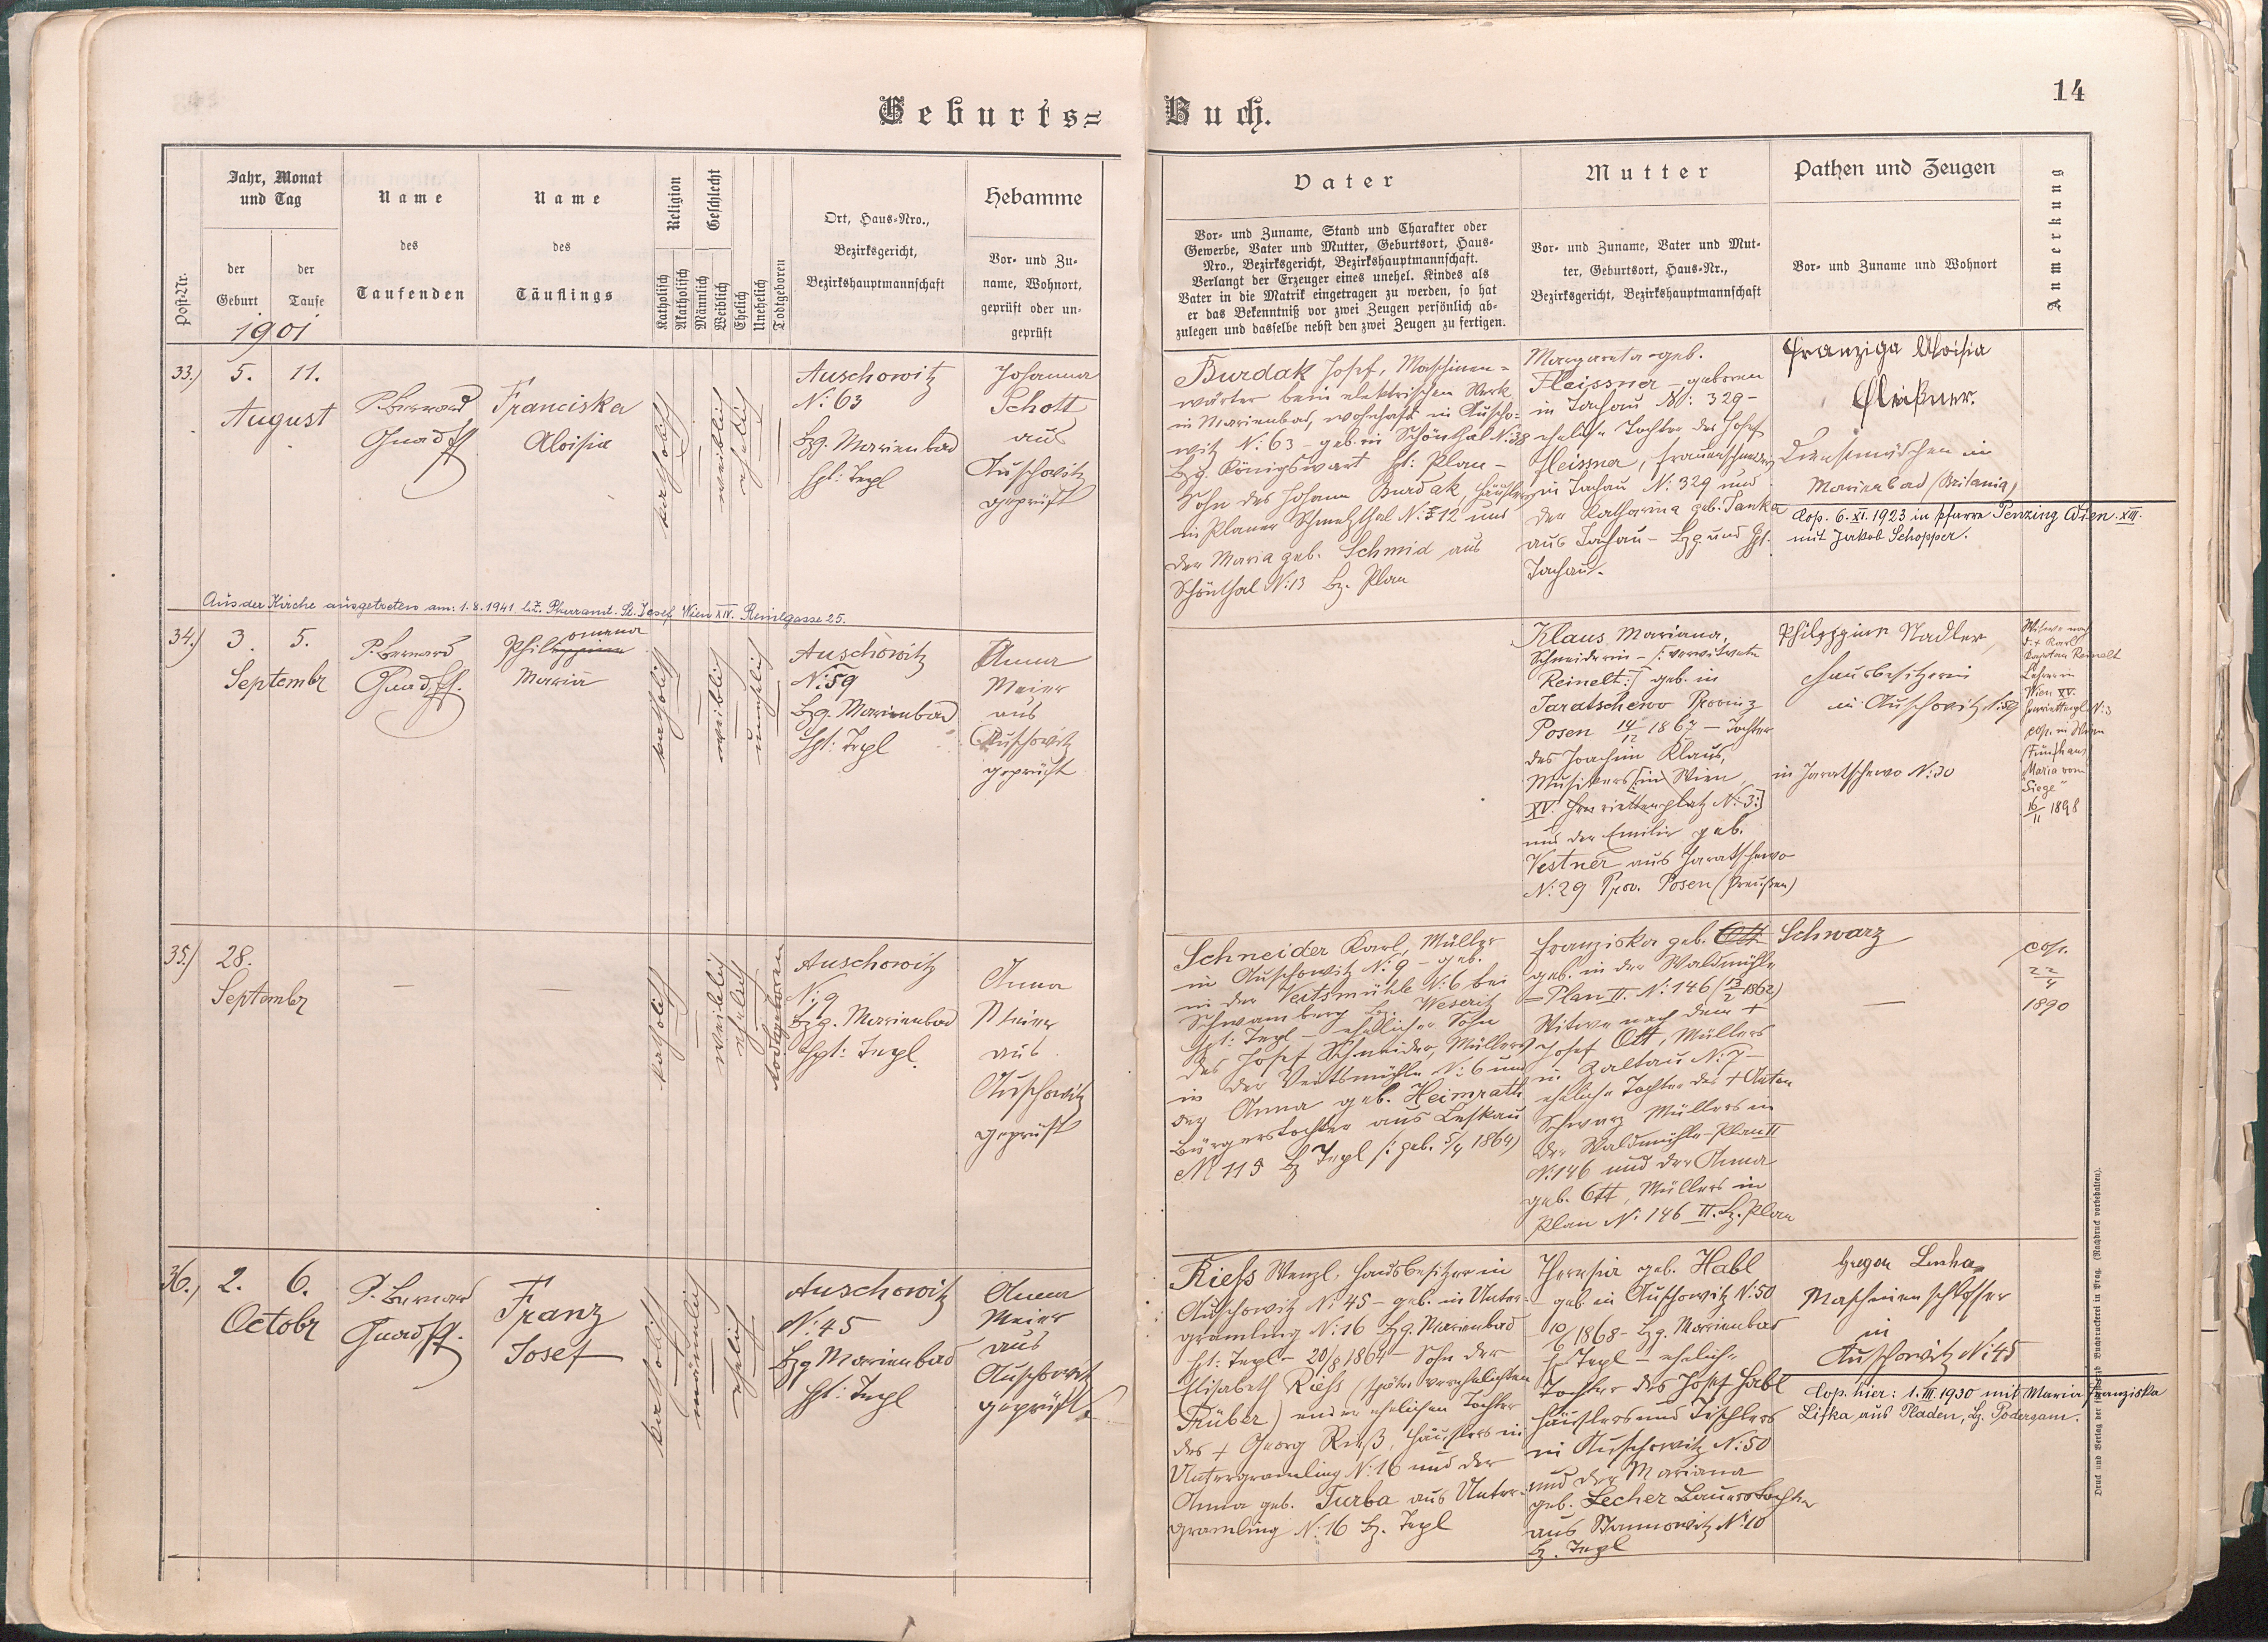 Geburts=
Buch.
14
Post-Nr.
Jahr, Monat
und Tag
der
Geburt
der
Taufe
1901
Name
des
Taufenden
Name
des
Täuflings
Religion
Katholisch
Akatholisch
Geschlecht
Männlich
Weiblich
Ehelich
Unehelich
Todtgeboren
Ort, Haus-Nro.,
Bezirksgericht,
Bezirkshauptmannschaft
Hebamme
Vor- und Zu-
name, Wohnort,
geprüft oder un-
geprüft
Vater
Vor- und Zuname, Stand und Charakter oder
Gewerbe, Vater und Mutter, Geburtsort, Haus-
Nro., Bezirksgericht, Bezirkshauptmannschaft.
Verlangt der Erzeuger eines unehel. Kindes als
Vater in die Matrik eingetragen zu werden, so hat
er das Bekenntniß vor zwei Zeugen persönlich ab-
zulegen und dasselbe nebst den zwei Zeugen zu fertigen.
Mutter
Vor- und Zuname, Vater und Mut-
ter, Geburtsort, Haus-Nr.,
Bezirksgericht, Bezirkshauptmannschaft
Pathen und Zeugen
Vor- und Zuname und Wohnort
Anmerkung
33.)
5. 11.
August
P. Bernard
Franciska
Aloisia
katholisch
weiblich
ehelich
Auschowitz
N: 63
Bzg. Marienbad
Hpt: Tepl
Johanna
Schott
aus
Auschowitz
geprüft
Burdak Josef, Maschinen=
wärter beim elektrischen Werk
in Marienbad, wohnhaft in Auscho=
witz N: 63 - geb. in Schönthal N: 38
Bzg. Königswart Hpt: Plan -
Sohn des Johann Burdak, Häuslers
in Planer Schmelzthal N: 12 und
der Maria geb. Schmid aus
Schönthal N: 13 Bz. Plan
Margareta geb.
Fleissner - geboren
in Tachau N: 329 -
eheliche Tochter des Josef
Fleissner, Frauenschneiders
in Tachau N: 329 und
der Katharina geb. Janka
aus Tachau - Bzg. und Hpt.
Tachau.
Franziga Aloisia
Fleißner.
Dienstmädchen in
Marienbad (Britania)
Cop. 6. XI. 1923 in Pfarre Penzing Wien XIII.
mit Jakob Schopper.
Aus der Kirche ausgetreten am: 1.8.1941 lt. Z. Pfarramt St. Josef, Wien XIV. Reinlgasse 25.
34.)
3. 5.
Septembr
P. Bernard
Philomena
Maria
katholisch
weiblich
unehelich
Auschowitz
N: 59
Bzg. Marienbad
Hpt: Tepl
Anna
Meier
aus
Auschowitz
geprüft
Klaus Mariana,
Schneiderin - /: verwitwete
Reinelt :/ geb. in
Jaratschewo Provinz
Posen 14/12 1867 - Tochter
des Joachim Klaus,
Musikers [in Wien
XV. Henriettenplatz N: 3:]
und der Emilie geb.
Vestner aus Jaratschewo
N: 29 Prov. Posen (Preußen)
Stadler,
Hausbesitzerin
in Auschowitz N: 59
in Jaratschewo N: 30
Witwe nach
d. + Karl
Reinelt
Lehrer in
Wien XV.
N: 3
cop. in Wien
(Fünfhaus)
"Maria vom
Siege"
16/11 1898
35.)
28.
Septembr
katholisch
weiblich
ehelich
todtgeboren
Auschowitz
N: 9
Bzg. Marienbad
Hpt: Tepl.
Anna
Meier
aus
Auschowitz
geprüft
Schneider Karl, Müller
in Auschowitz N: 9 - geb.
in der Veitsmühle N: 6 bei
Schwamberg Bz. Weseritz
Hpt: Tepl - ehelicher Sohn
des Josef Schneider, Müllers
in der Veitsmühle N: 6 und
der Anna geb. Heimrath
Bürgerstochter aus Leskau
N: 115 Bz Tepl /: geb. 5/4 1864)
Franziska geb. Ott Schwarz
geb. in der Waldmühle
- Plan II. N: 146 (13/2 1862)
Witwe nach dem +
Josef Ott, Müllers
in Zaltau N: 7 -
eheliche Tochter des + Anton
Schwarz Müllers in
der Waldmühle - Plan II
N: 146 und der Anna
geb. Ott, Müllers in
Plan N: 146 II. Bz. Plan
cop.
22/4
1890
36.)
2. 6.
Octobr
P. Bernard
Franz
Josef
katholisch
männlich
ehelich
Auschowitz
N: 45
Bzg Marienbad
Hpt: Tepl
Anna
Meier
aus
Auschowitz
geprüft
Riehs Wenzl, Hausbesitzer in
Auschowitz N: 45 - geb. in Unter-
gramling N: 16 Bzg. Marienbad
Hpt: Tepl - 20/8 1864 - Sohn der
Elisabeth Riehs (später verehelichten
Trüber) einer ehelichen Tochter
des + Georg Rieß, Häuslers in
Untergramling N: 16 und der
Anna geb. Turba aus Unter-
gramling N: 16 Bz. Tepl
Theresia geb. Habl
- geb. in Auschowitz N: 50
10/6 1868 - Bzg. Marienbad
Hpt Tepl - eheliche
Tochter des Josef Habl
Häuslers und Tischlers
in Auschowitz N: 50
und der Mariana
geb. Lecher Bauerstochter
aus Stannowitz N: 10
Bz. Tepl
Maschinenschlosser
in
Auschowitz N: 45
Cop. hier: 1. III. 1930 mit Maria Franziska
Lifka aus Pladen, Bz. Podersam.
Druck und Verlag der Buchdruckerei in Prag. (Nachdruck vorbehalten).